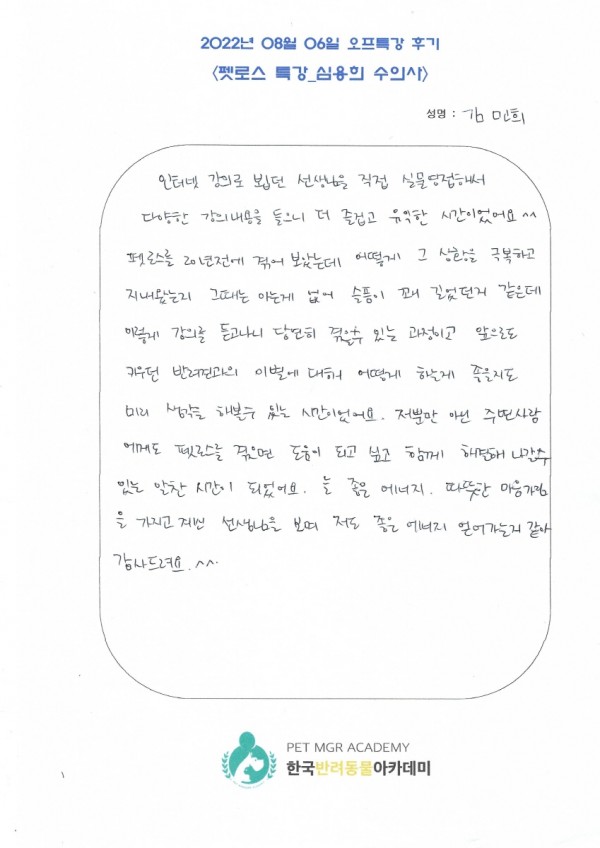 2022년 08월 06일 오프특강 후기
<펫로스 특강_심용희 수의사>
성명 : 김민희
인터넷 강의로 뵙던 선생님을 직접 실물영접해서
다양한 강의내용을 들으니 더 즐겁고 유익한 시간이었어요^^
펫로스를 20년전에 겪어 보았는데 어떻게 그 상황을 극복하고
지내왔는지 그때는 아는게 없어 슬픔이 꽤 길었던거 같은데
이렇게 강의를 듣고나니 당연히 겪을수 있는 과정이고 앞으로도
키우던 반려견과의 이별에 대해 어떻게 하는게 좋을지도
미리 생각을 해볼수 있는 시간이었어요. 저뿐만 아닌 주변사람
에게도 펫로스를 겪으면 도움이 되고 싶고 함께 해결해 나갈수
있는 알찬 시간이 되었어요. 늘 좋은 에너지. 따뜻한 마음가짐
을 가지고 계신 선생님을 보며 저도 좋은 에너지 얻어가는거 같아
감사드려요. ^^.
PET MGR ACADEMY
한국반려동물아카데미